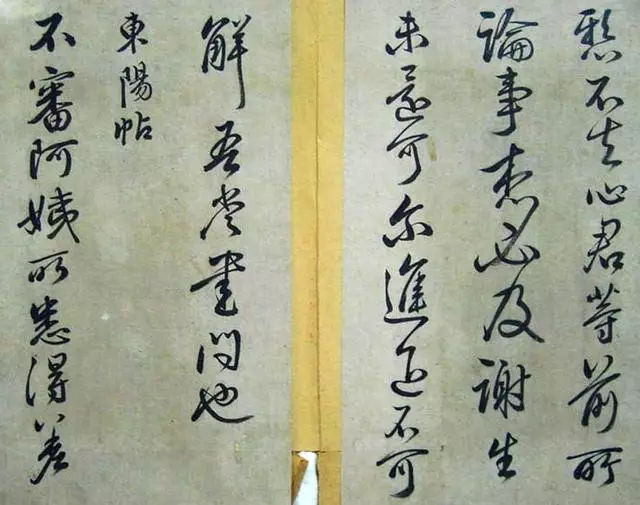 懸不去心君等前所
論事想必及謝生
未還可爾進退不可
解吾當書問也
東陽帖
不審阿姨所患得小差